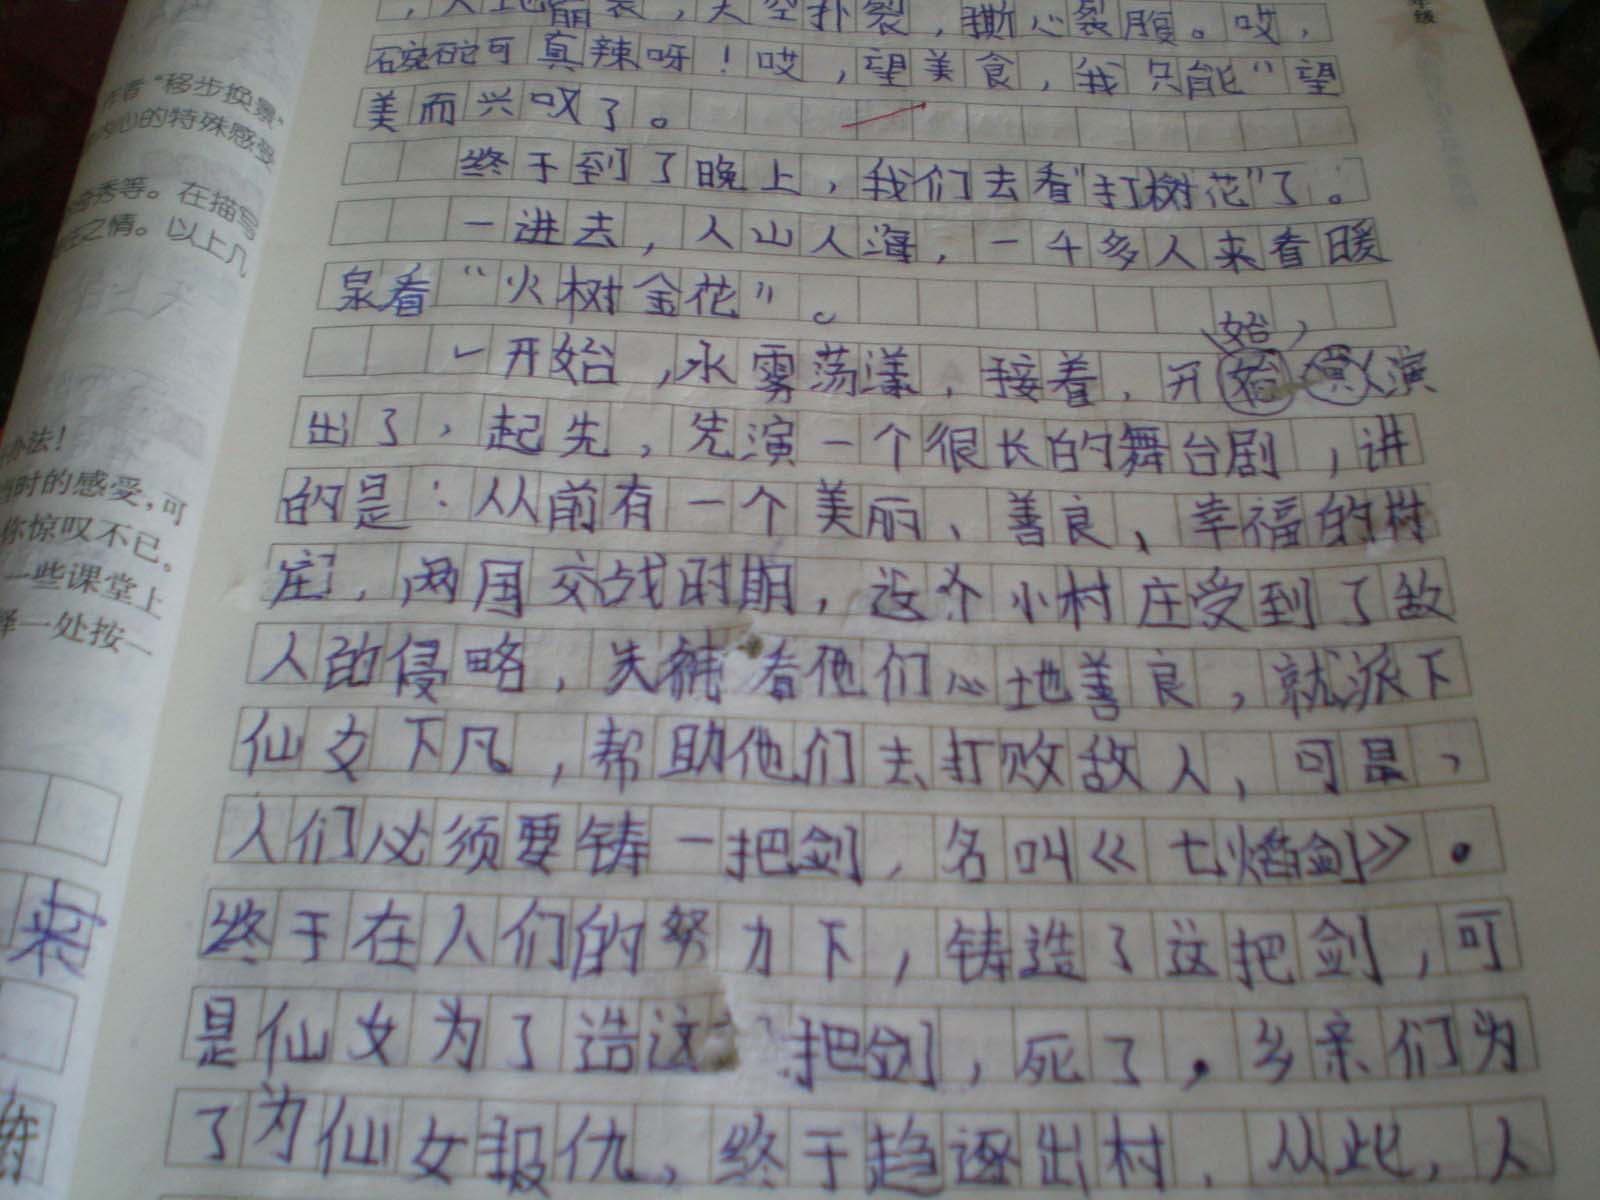 ，天地崩裂，天空扑裂，撕心裂腹。哎，
碗砣可真辣呀！哎，望美食，我只能“望
美而兴叹了。
终于到了晚上，我们去看“打树花”了。
一进去，人山人海，一千多人来看暖
泉看“火树金花”。
始
一开始，水雾荡漾，接着，开始演
出了，起先，先演一个很长的舞台剧，讲
的是：从前有一个美丽、善良、幸福的村
庄，两国交战时期，这个小村庄受到了敌
人的侵略，看他们心地善良，就派下
仙女下凡，帮助他们去打败敌人，可是，
人们必须要铸一把剑，名叫《七焰剑》。
终于在人们的努力下，铸造了这把剑，可
是仙女为了造这把剑，死了，乡亲们为
了为仙女报仇，终于趋逐出村，从此，人
作者“移步换景”
内心的特殊感受
奇秀等。在描写
之情。以上几
办法！
当时的感受，可
你惊叹不已。
一些课堂上
择一处按一
来
年级